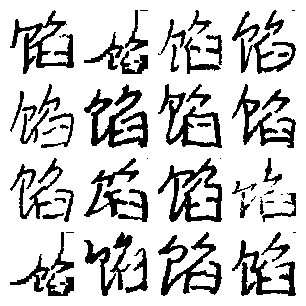 馅馅馅馅
馅馅馅馅
馅馅馅馅
馅馅馅馅